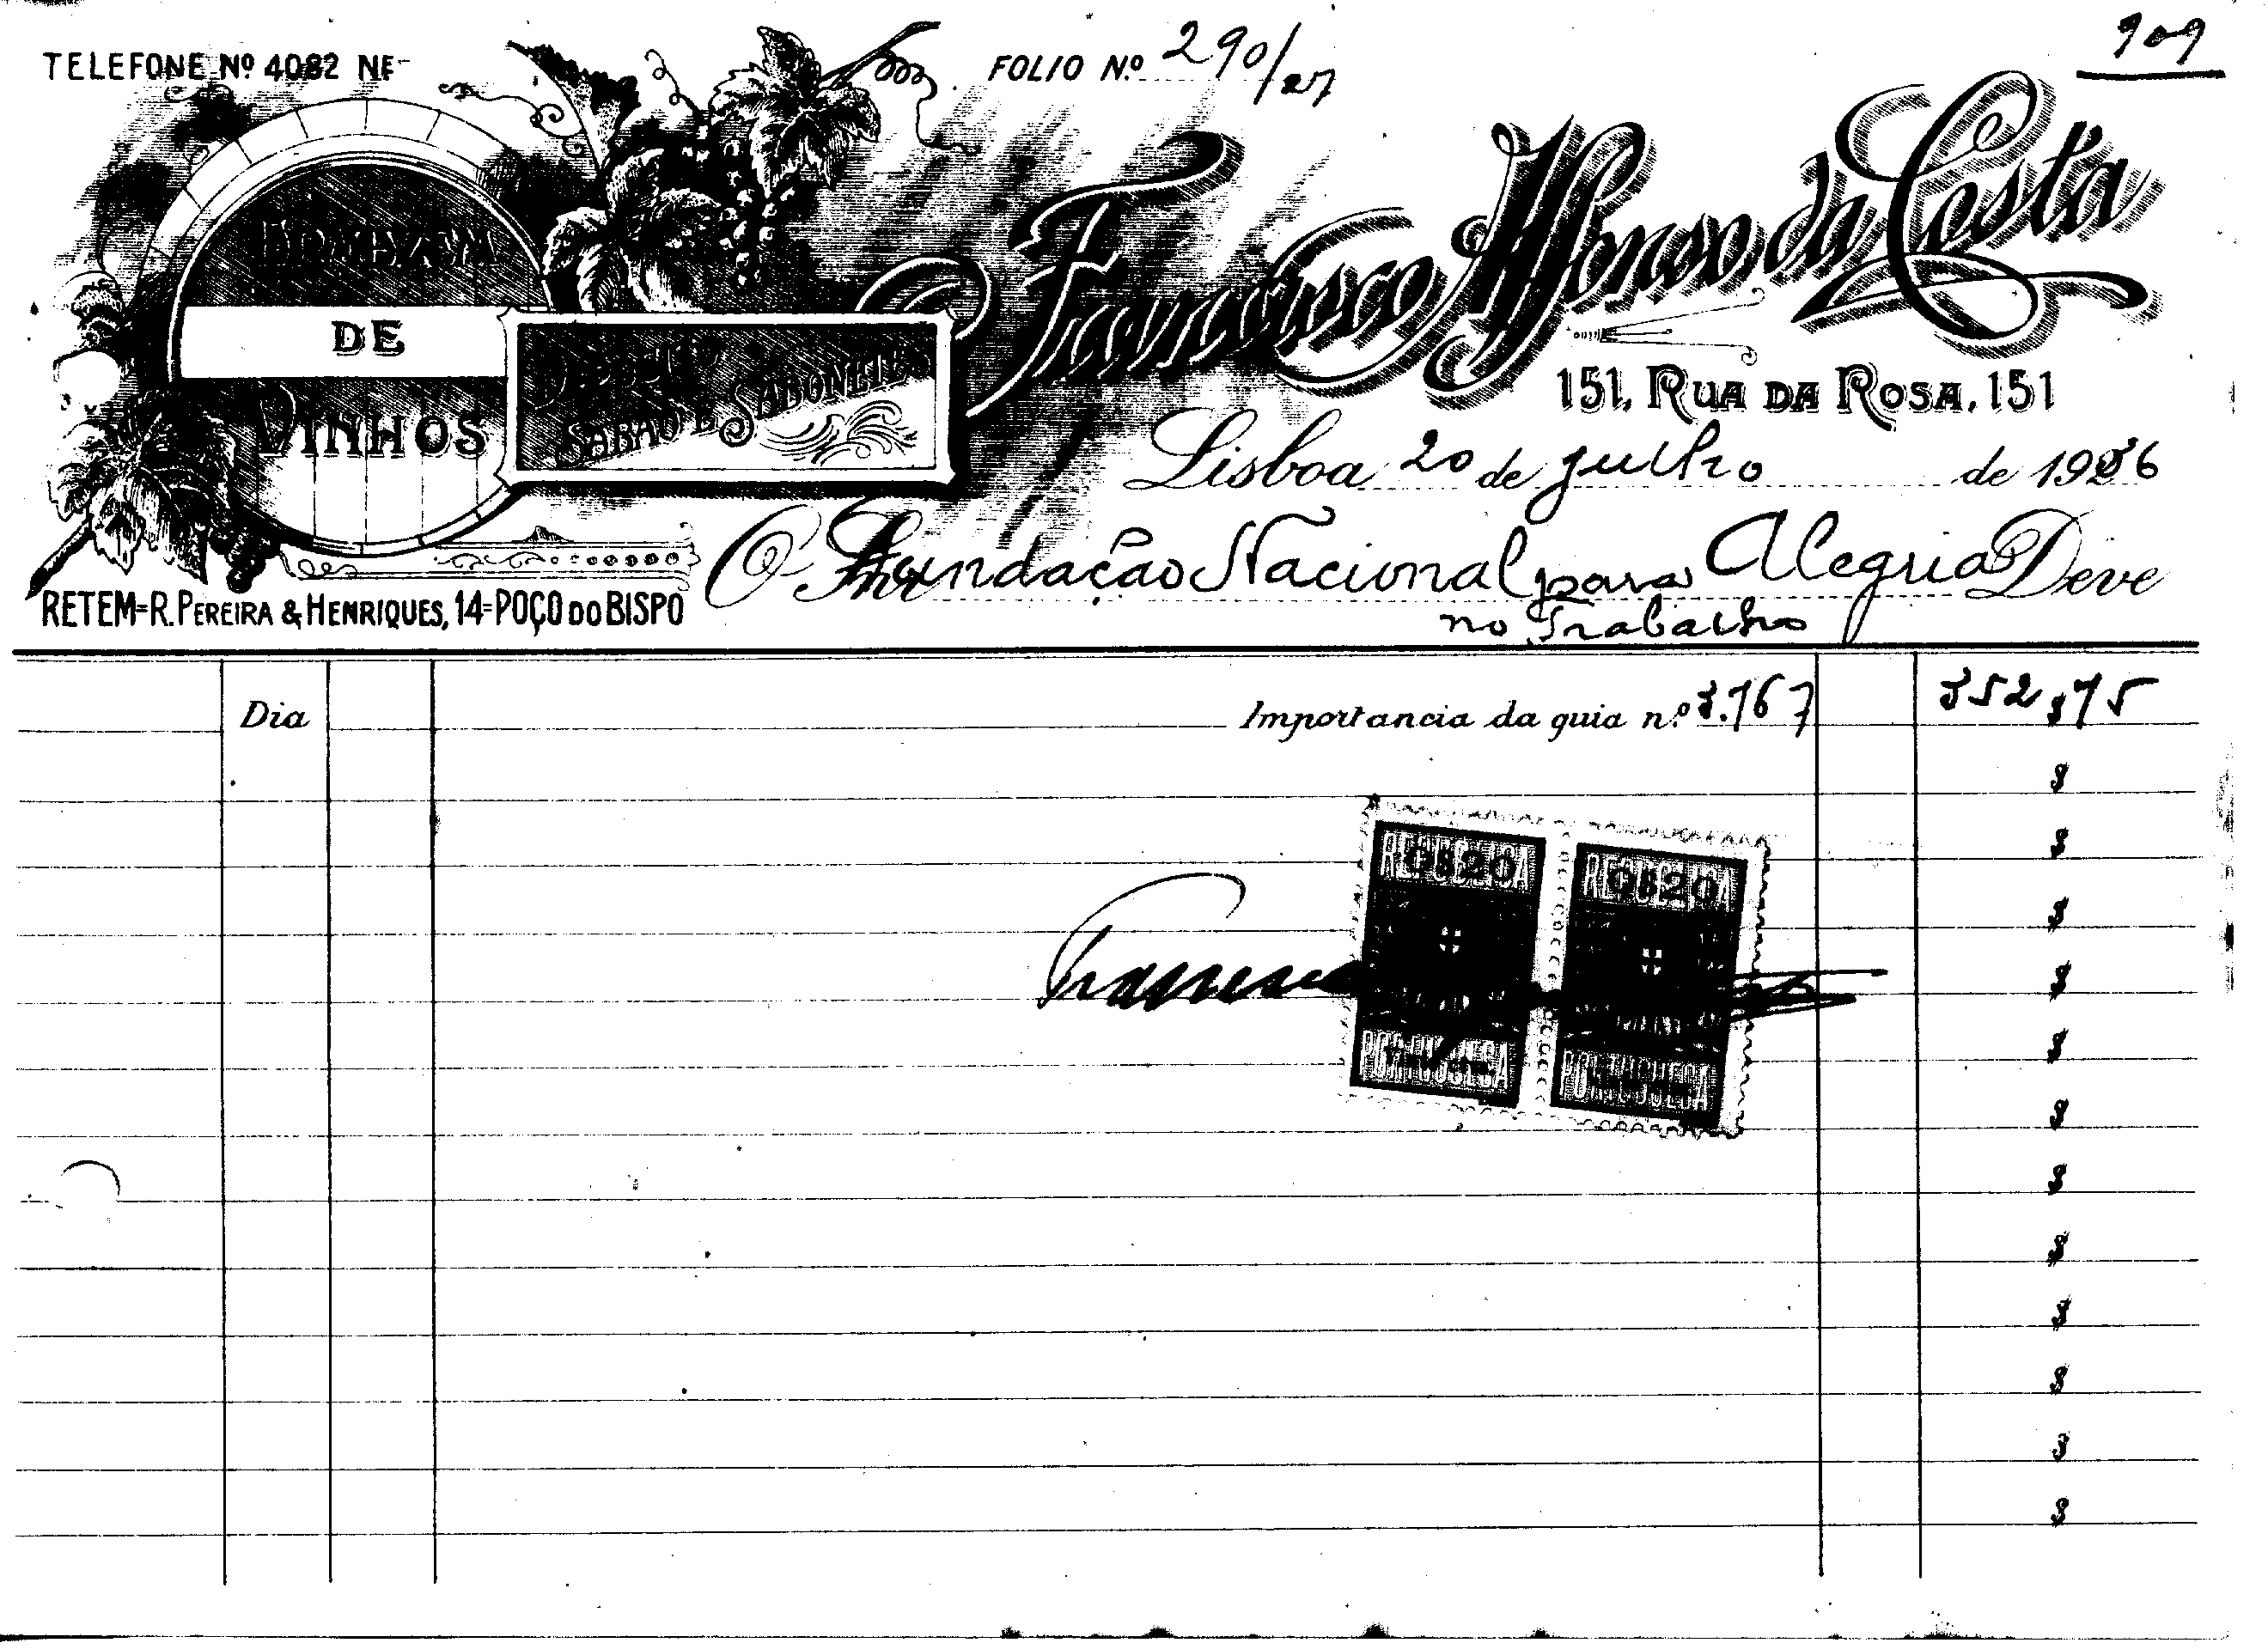 TELEFONE Nº 4082 NE
FOLIO Nº 290/27
909
ARMAZEM
DE
VINHOS
DEPOSITO
SABÃO E SABONETES
Francisco Affonso da Costa
151, RUA DA ROSA, 151
Lisboa 20 de julho de 1936
O Fundação Nacional para Alegria Deve
no Trabalho
RETEM=R. PEREIRA & HENRIQUES, 14=POÇO DO BISPO
Dia Importancia da guia n.º 3.767 352$75
$
$
$
$
$
$
$
$
$
$
$
$
REPUBLICA 0$20 REPUBLICA 0$20
Francisco
PORTUGUESA PORTUGUESA